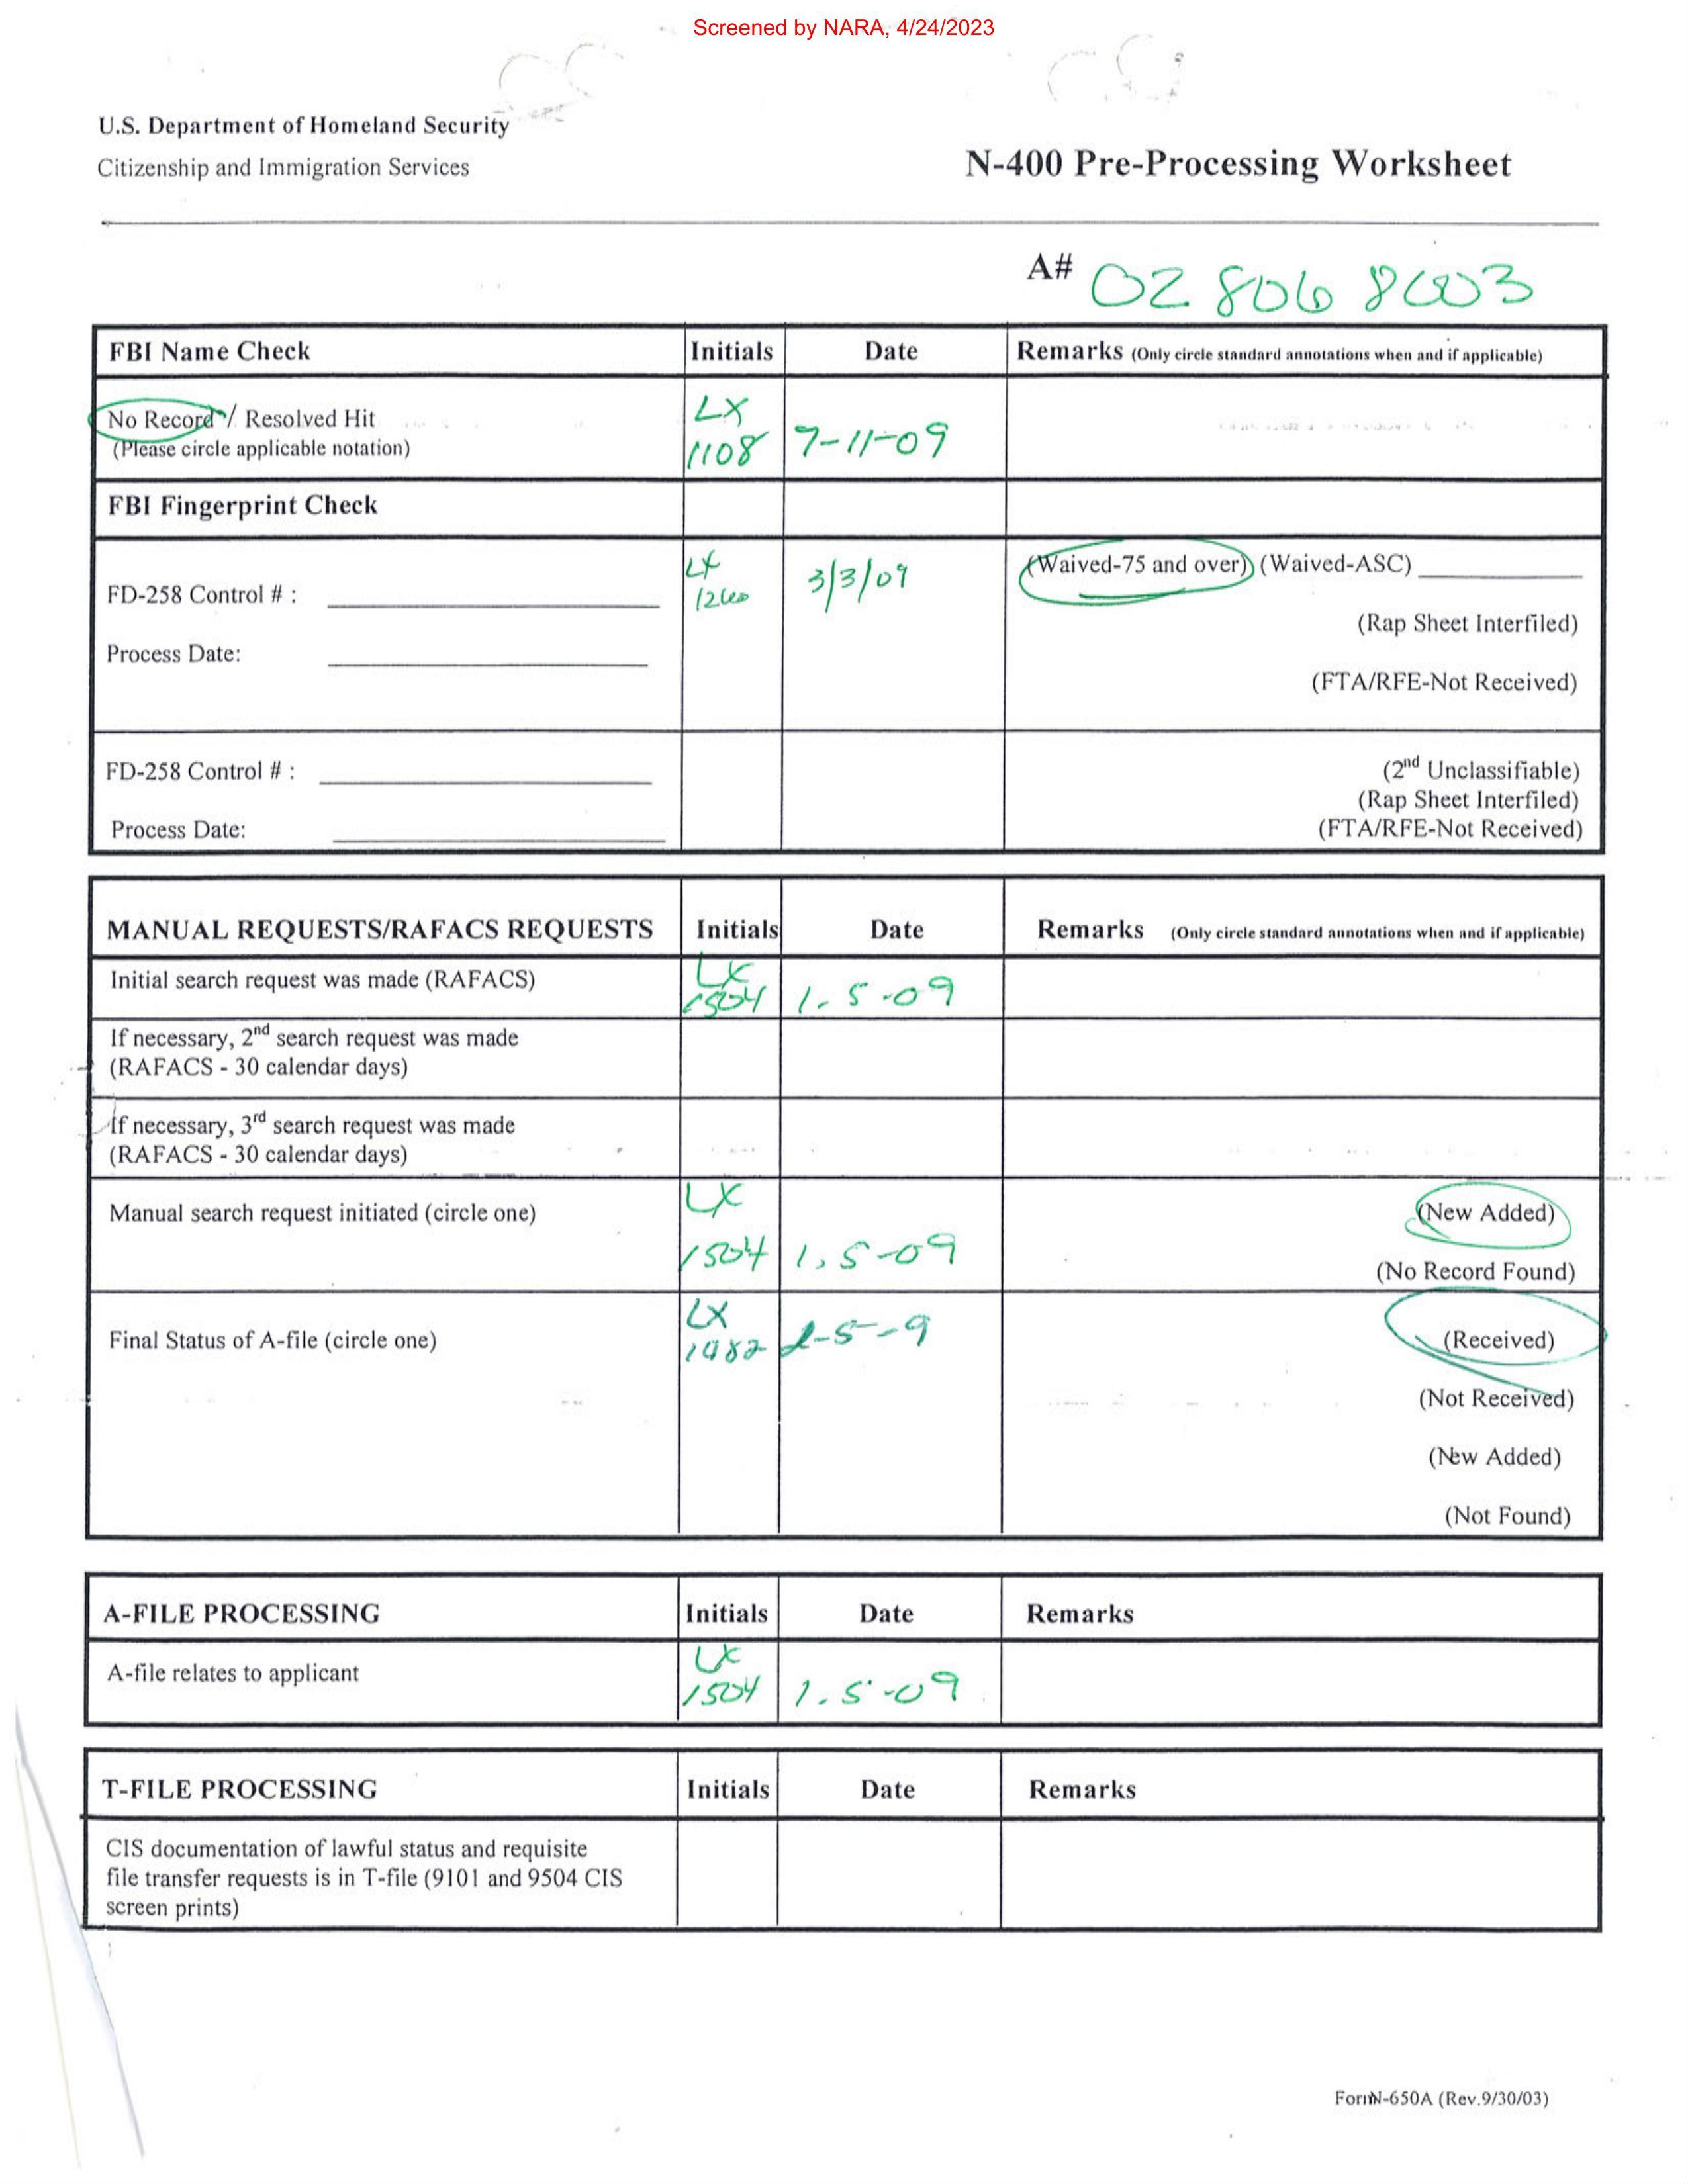 Screened by NARA, 4/24/2023
U.S. Department of Homeland Security
Citizenship and Immigration Services
N-400 Pre-Processing Worksheet
A# 02 806 8003
FBI Name Check Initials Date Remarks (Only circle standard annotations when and if applicable)
No Record / Resolved Hit
(Please circle applicable notation)
LX
1108 7-11-09
FBI Fingerprint Check
FD-258 Control # :
Process Date:
LX
3/3/09
(Waived-75 and over) (Waived-ASC)
(Rap Sheet Interfiled)
(FTA/RFE-Not Received)
FD-258 Control # :
Process Date:
(2nd Unclassifiable)
(Rap Sheet Interfiled)
(FTA/RFE-Not Received)
MANUAL REQUESTS/RAFACS REQUESTS Initials Date Remarks (Only circle standard annotations when and if applicable)
Initial search request was made (RAFACS) LX
1504 1-5-09
If necessary, 2nd search request was made
(RAFACS - 30 calendar days)
If necessary, 3rd search request was made
(RAFACS - 30 calendar days)
Manual search request initiated (circle one) LX
1504 1-5-09
(New Added)
(No Record Found)
Final Status of A-file (circle one) LX
1482 2-5-9
(Received)
(Not Received)
(New Added)
(Not Found)
A-FILE PROCESSING Initials Date Remarks
A-file relates to applicant LX
1504 1-5-09
T-FILE PROCESSING Initials Date Remarks
CIS documentation of lawful status and requisite
file transfer requests is in T-file (9101 and 9504 CIS
screen prints)
Form N-650A (Rev.9/30/03)